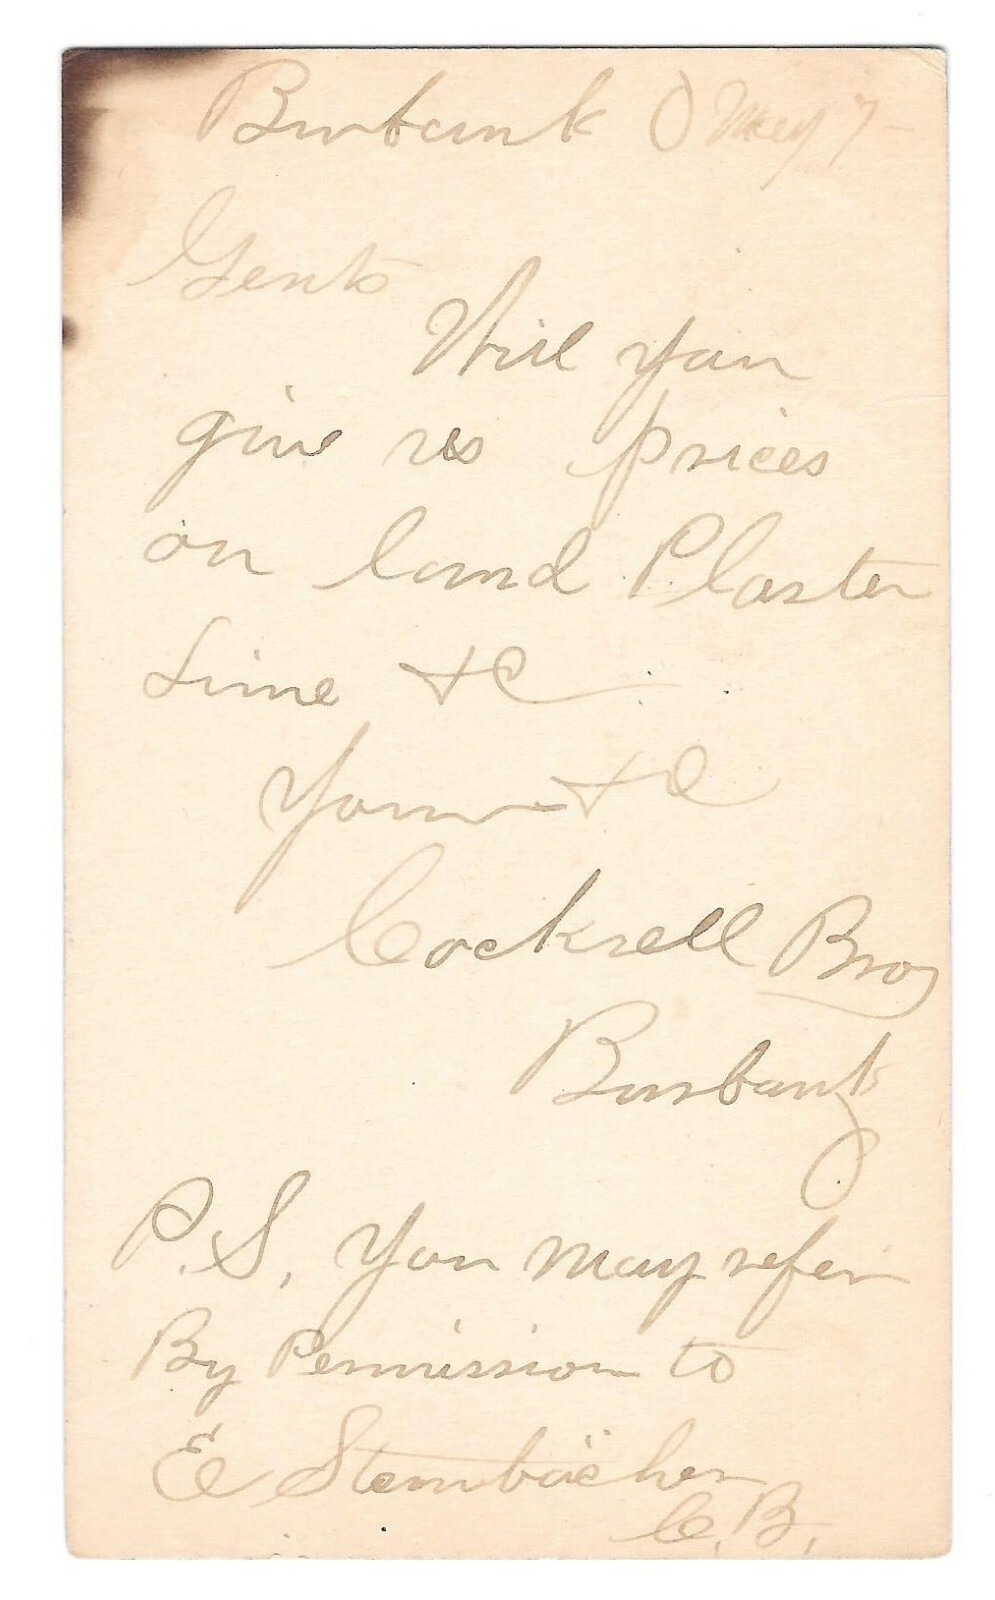 Burbank O May 7
Gents
Will you
give us prices
on land Plaster
Lime &C
Yours &C
Cockrell Bros
Burbank
O
P.S. You may refer
By Permission to
E Steinbacher
C.B.